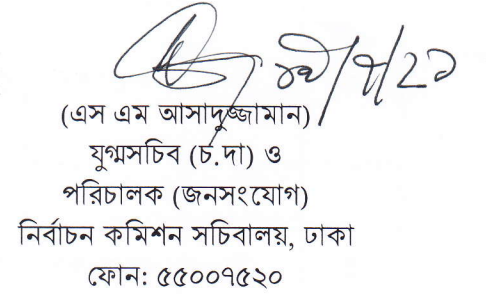 (এস এম আসাদুজ্জামান)
যুগ্মসচিব (চ.দা) ও
পরিচালক (জনসংযোগ)
নির্বাচন কমিশন সচিবালয়, ঢাকা
ফোন: ৫৫০০৭৫২০